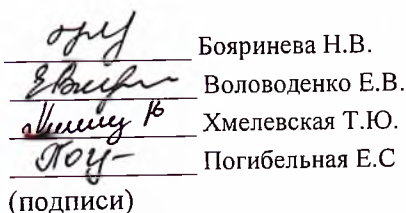 Бояринева Н.В.
Воловоденко Е.В.
Хмелевская Т.Ю.
Погибельная Е.С
(подписи)